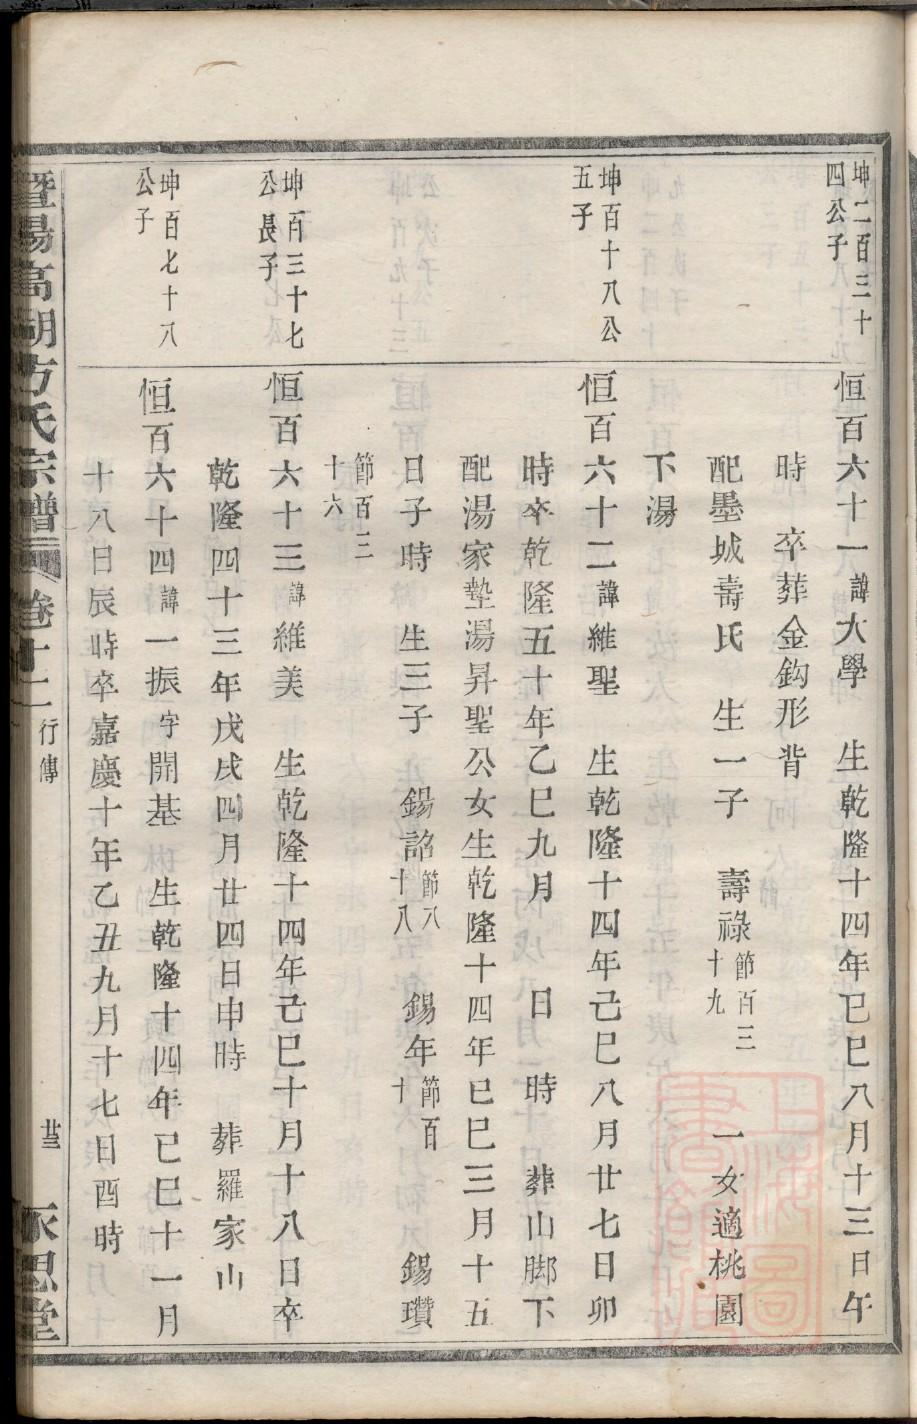 坤二百三十
四公子
恒百六十一諱大學　生乾隆十四年已巳八月十三日午
時　卒葬金鈎形背
配墨城壽氏　生一子　壽祿節百三十九　一女適桃園
下湯
坤百十八公
五子
恒百六十二諱維聖　生乾隆十四年己巳八月廿七日卯
時卒乾隆五十年乙巳九月　日　時　葬山脚下
配湯家墊湯昇聖公女生乾隆十四年巳巳三月十五
日子時　生三子　錫詔節八十八　錫年節百十　錫瓚
節百三十六
坤百三十七
公長子
恒百六十三諱維美　生乾隆十四年己巳十月十八日卒
乾隆四十三年戊戌四月廿四日申時　葬羅家山
坤百七十八
公子
恒百六十四諱一振字開基　生乾隆十四年已巳十一月
十八日辰時卒嘉慶十年乙丑九月十七日酉時
暨陽高湖方氏宗譜　卷十二　行傳　廿三　永思堂